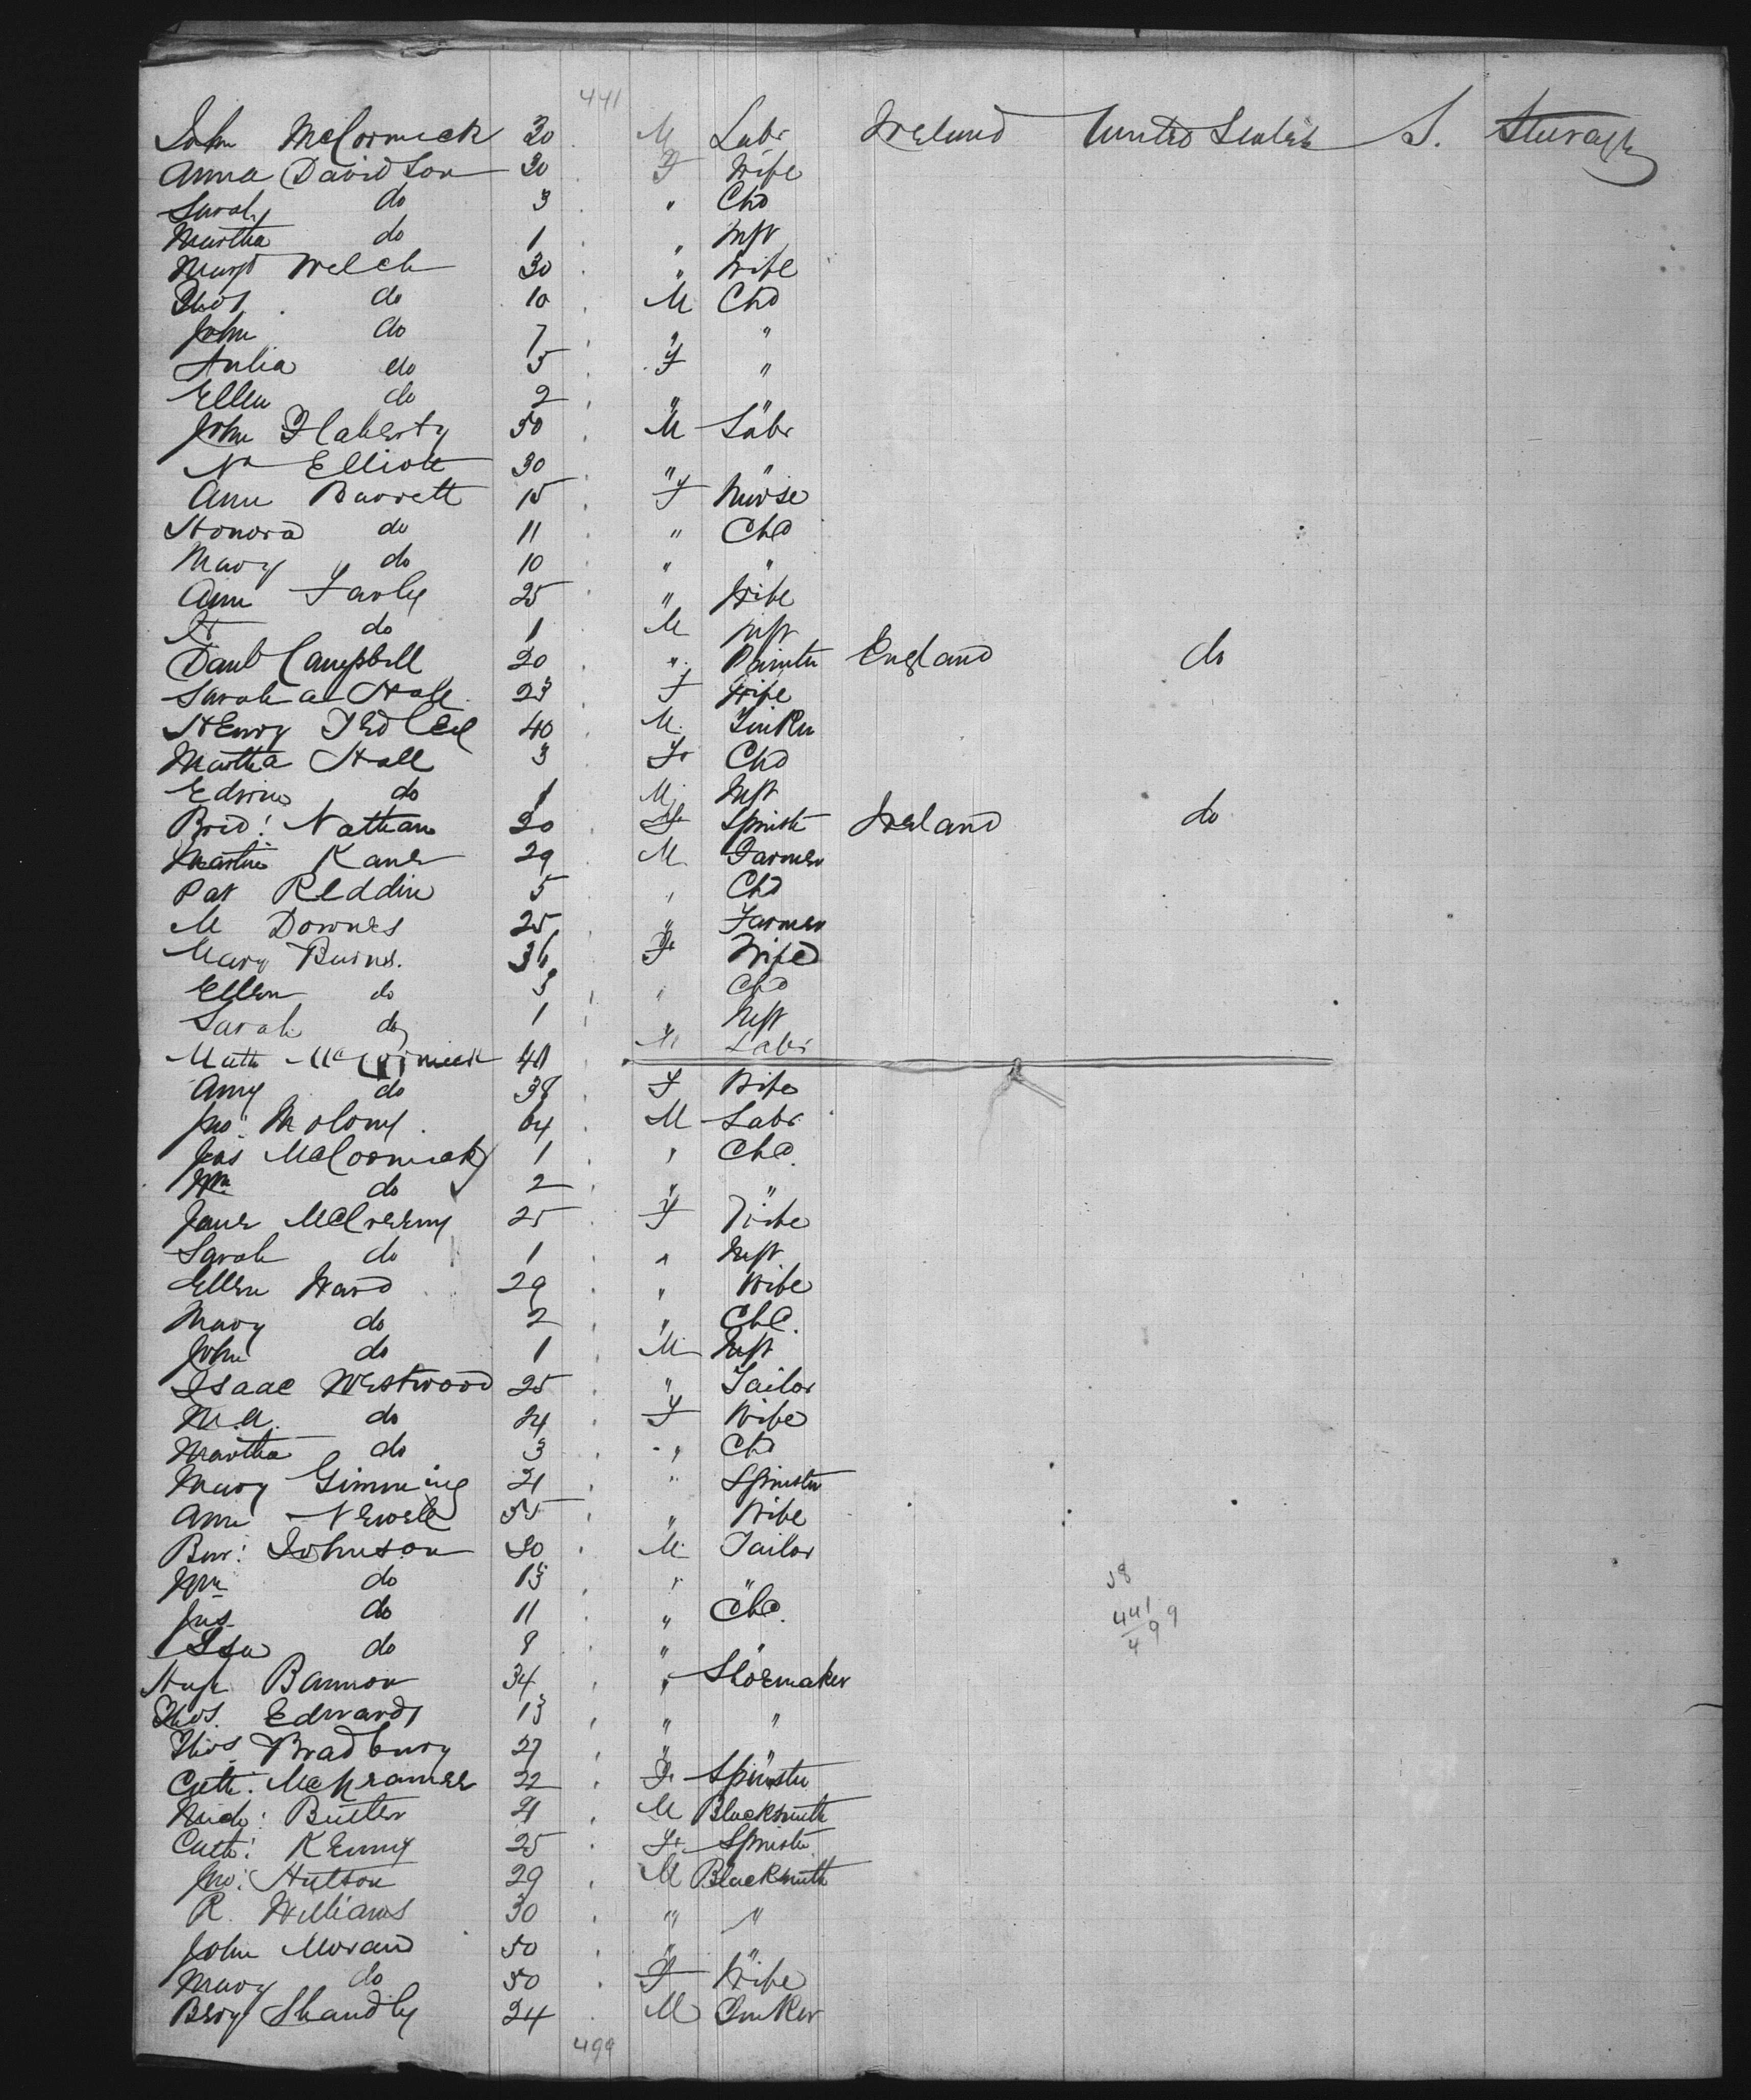 441
John McCormick 30 M Labr Ireland United States S. Steerage
Anna Davidson 30 F Wife
Sarah do 3 " Chd
Martha do 1 " Inft
Margt Welch 30 " Wife
Thos do 10 M Chd
John do 7 " "
Julia do 5 F "
Ellen do 2 " "
John Flaherty 50 M Labr
Elliott 30 " "
Ann Barrett 15 F Nurse
Honora do 11 " Chd
Mary do 10 " "
Ann Farly 25 " Wife
do 1 M Inft
Danl Campbell 20 " Painter England do
Sarah a Hall 23 F Wife
Henry 40 M. Tinker
Martha Hall 3 F Chd
Edwin do 1 M Inft
Brid: Nathan 20 F Spinstr Ireland do
Martin Kane 29 M Farmer
Pat Reddin 5 " Chd
M Downes 25 " Farmer
Mary Burns. 36 F Wife
Ellen do 3 " Chd
Sarah do 1 " Inft
Matth McCormick 40 M Labr
Amy do 38 F Wife
Jno: Molony 64 M Labr
Jas McCormick 1 " Chd.
Wm do 2 " "
Jane McCreeny 25 F Wife
Sarah do 1 " Inft
Ellen Ward 29 " Wife
Mary do 2 " Chd.
John do 1 M Inft
Isaac Westwood 25 " Tailor
M.A. do 24 F Wife
Martha do 3 " Chd
Mary Gimming 21 " Spinster
Ann Newell 55 " Wife
Ben: Johnson 20 M Tailor
Wm do 13 " "
58
Jas do 11 " Chd.
441
499
do 8 " "
Hugh Bannon 34 " Shoemaker
Thos. Edwards 13 " "
Thos Bradbury 27 " "
Cath: 22 F Spinster
Mich: Butler 21 M Blacksmith
Cath: Kenny 25 F Spinster
Jno: Hutson 29 M Blacksmith
R. Williams 30 " "
John Moran 50 " "
Mary do 50 F Wife
Benj Shandly 24 M Tinker
499